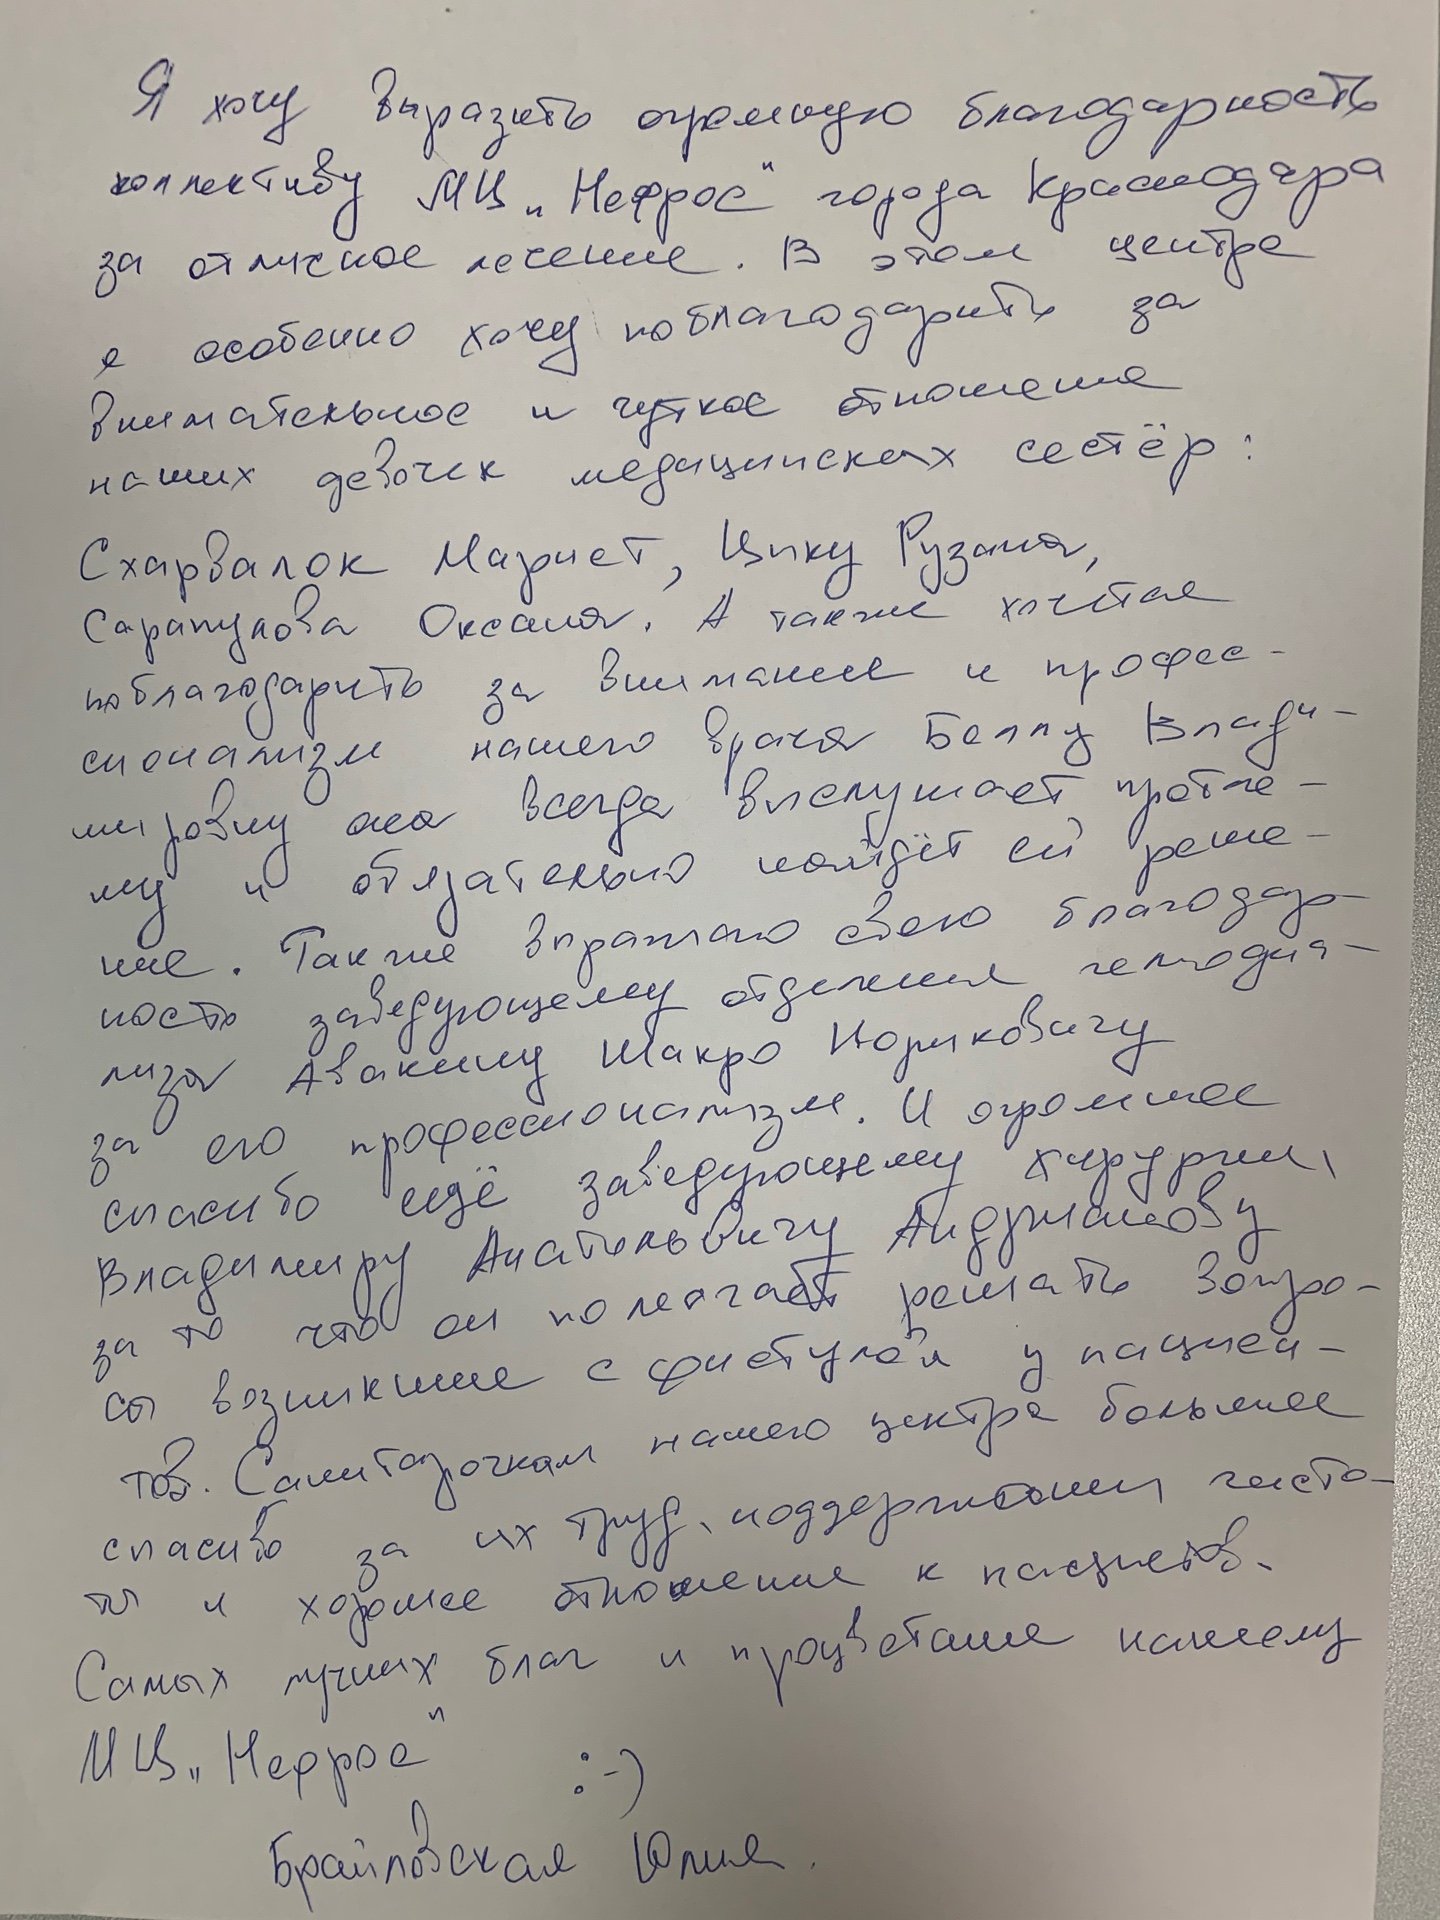 Я хочу выразить огромную благодарность
коллективу МЦ „Нефрос" города Краснодара
за отличное лечение. В этом центре
я особенно хочу поблагодарить за
внимательное и чуткое отношение
наших девочек медицинских сестёр:
Схарвалок Мариет, Цику Рузана,
Сарапулова Оксана. А также хочется
поблагодарить за внимание и профес-
сионализм нашего врача Беллу Влади-
мировну она всегда выслушает пробле-
му и обязательно найдёт ей реше-
ние. Также выражаю свою благодар-
ность заведующему отделения гемодиа-
лиза Авакяну Шакро Юриковичу
за его профессионализм. И огромное
спасибо ещё заведующему хирургии,
Владимиру Анатольевичу Анджанову
за то что он помогает решать вопро-
сы возникшие с фистулой у пациен-
тов. Санитарочкам нашего центра большое
спасибо за их труд, поддержании чисто-
ты и хорошее отношение к пациентов.
Самых лучших благ и процветание нашему
МЦ „Нефрос" :-)
Брайловская Юлия.